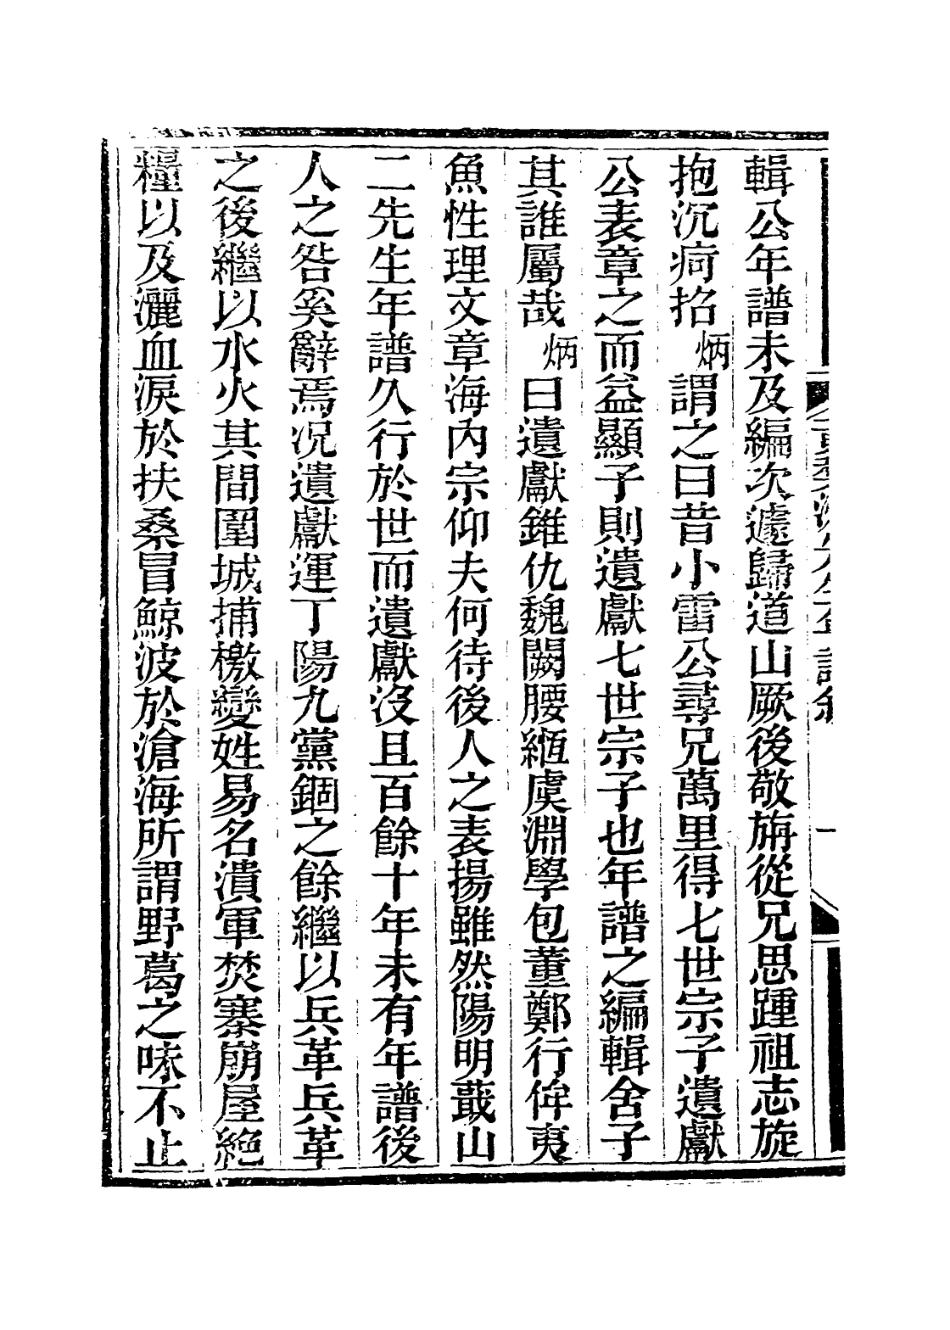 輯公年譜未及編次遽歸道山厥後敬旃從兄思踵祖志旋
抱沉疴招炳謂之曰昔小雷公尋兄萬里得七世宗子遺獻
公表章之而益顯子則遺獻七世宗子也年譜之編輯舍子
其誰屬哉炳曰遺獻錐仇魏闕腰絙虞淵學包董鄭行侔夷
魚性理文章海內宗仰夫何待後人之表揚雖然陽明蕺山
二先生年譜久行於世而遺獻沒且百餘十年未有年譜後
人之咎奚辭焉况遺獻運丁陽九黨錮之餘繼以兵革兵革
之後繼以水火其間圍城捕檄變姓易名潰軍焚寨崩屋絶
糧以及灑血淚於扶桑冒鯨波於滄海所謂野葛之味不止